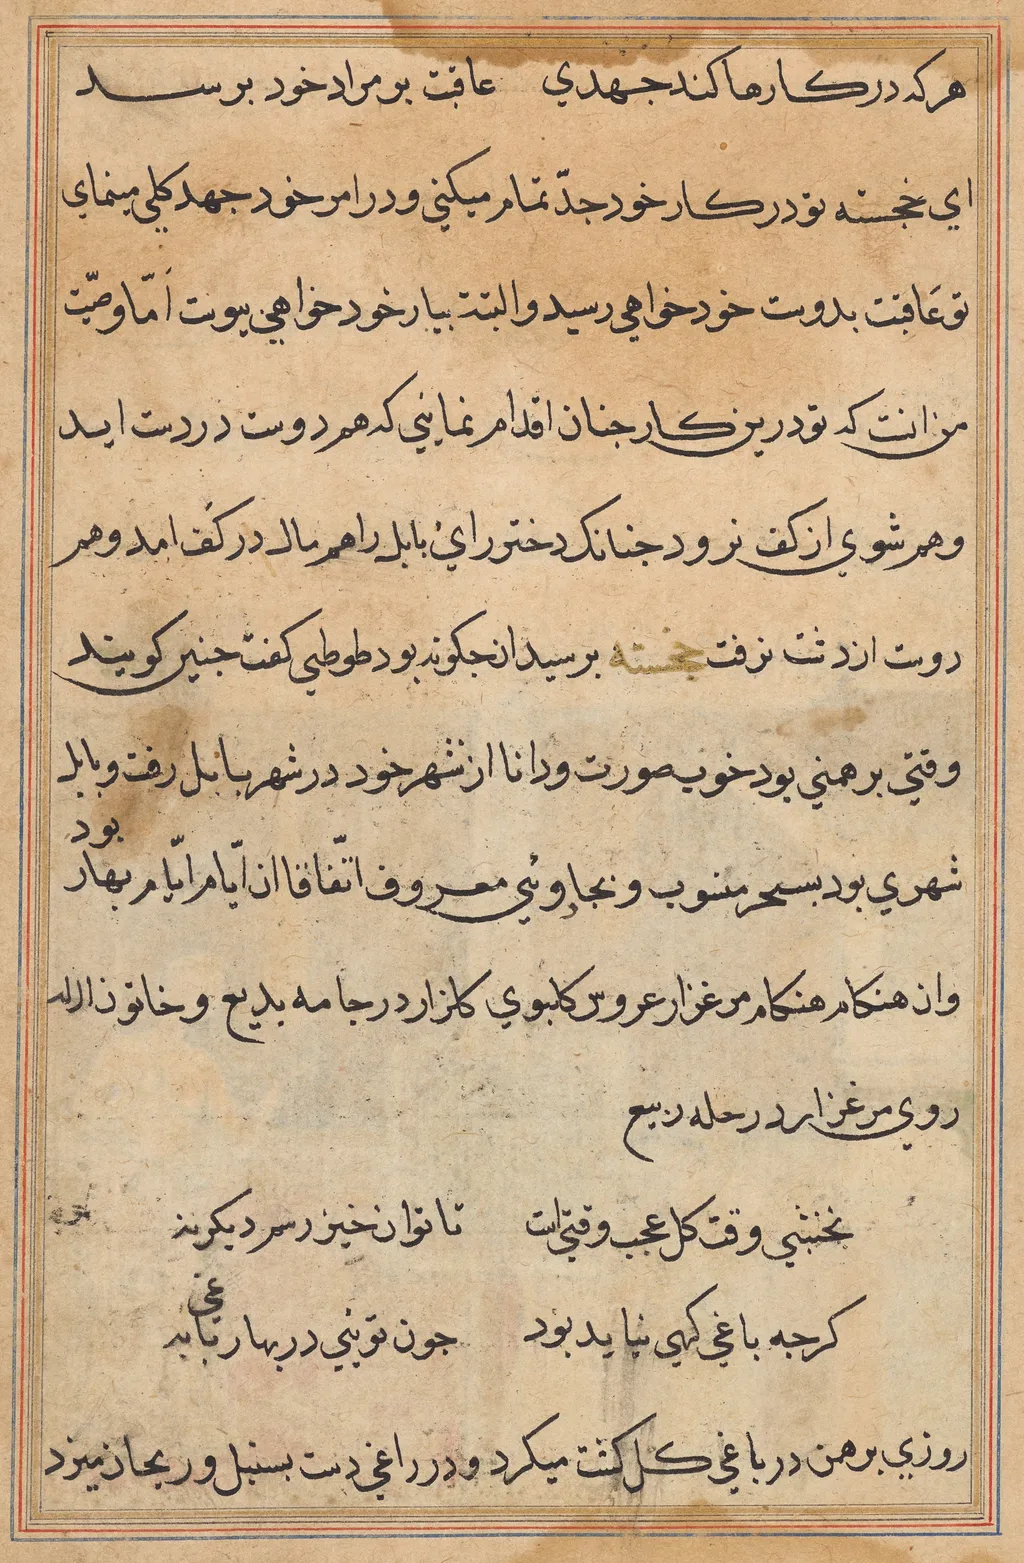 هرکه در کارها کند جهدي عاقبت بر مراد خود برسد
اي خجسته تو در کار خود جدّ تمام میکني و در امر خود جهد کلي مینماي
تو عَاقبت بدوست خود خواهي رسید و البتة بیار خود خواهي پیوست اَمّا وصیّت
من انست که تو درین کار جنان اقدام نمایني که هم دوست در دست اید
و هم شوي از کف نرود جنانک دختر رائ بابل را هم مال در کف امد و هم
دوست از دست نرفت خجسته برسید ان جکونه بود طوطي کفت جنین کویند
وقتي برهمني بود خوب صورت و دانا از شهر خود در شهر بابل رفت و بابل
شهري بود بسحر منسوب و بجادوئي معروف اتّفاقا ان ایّام ایّام بهار بود
و ان هنکام هنکام مرغزار عروس کلبوي کلزار در جامه بدیع و خاتون لاله
روي مرغزار در حله ربیع
نخشبي وقت کل عجب وقتي است تا توان خیز رسم دیکر نه
کرجه باغي کهي نباید بود جون تو بني در بهار باغي به
روزي برهمن در باغي کل کشت میکرد و در راغي دست بسنبل و ریحان میزد